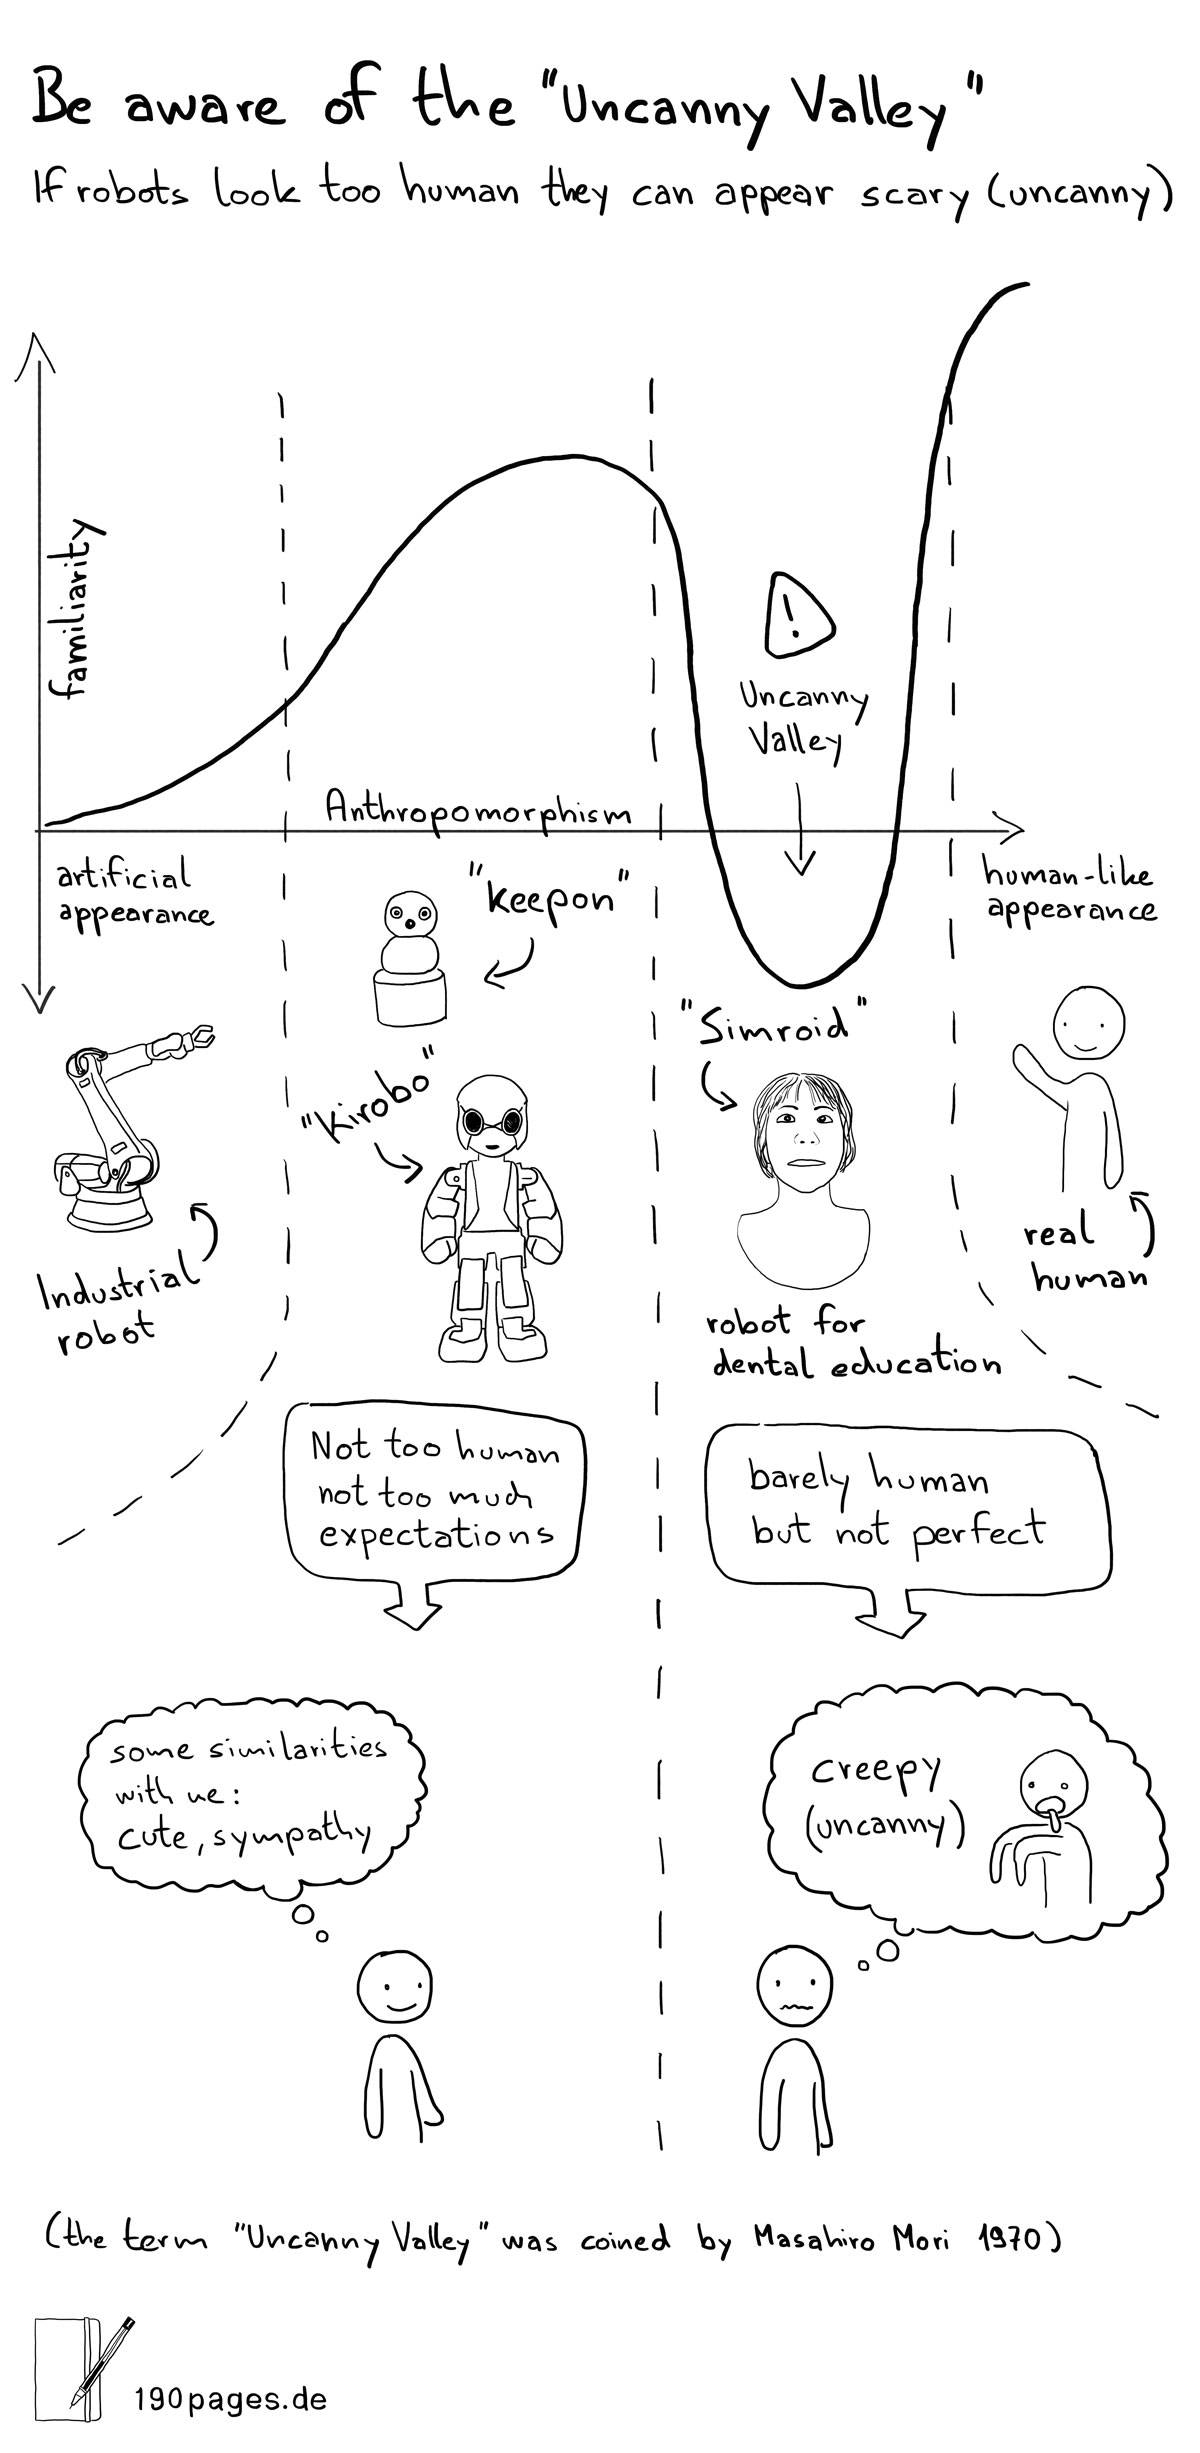 Be aware of the "Uncanny Valley"
If robots look too human they can appear scary (uncanny)
familiarity
!
Uncanny
Valley
Anthropomorphism
artificial
appearance
human-like
appearance
"keepon"
"Kirobo"
"Simroid"
Industrial
robot
real
human
robot for
dental education
Not too human
not too much
expectations
barely human
but not perfect
some similarities
with me:
cute, sympathy
creepy
(uncanny)
(the term "Uncanny Valley" was coined by Masahiro Mori 1970)
190pages.de